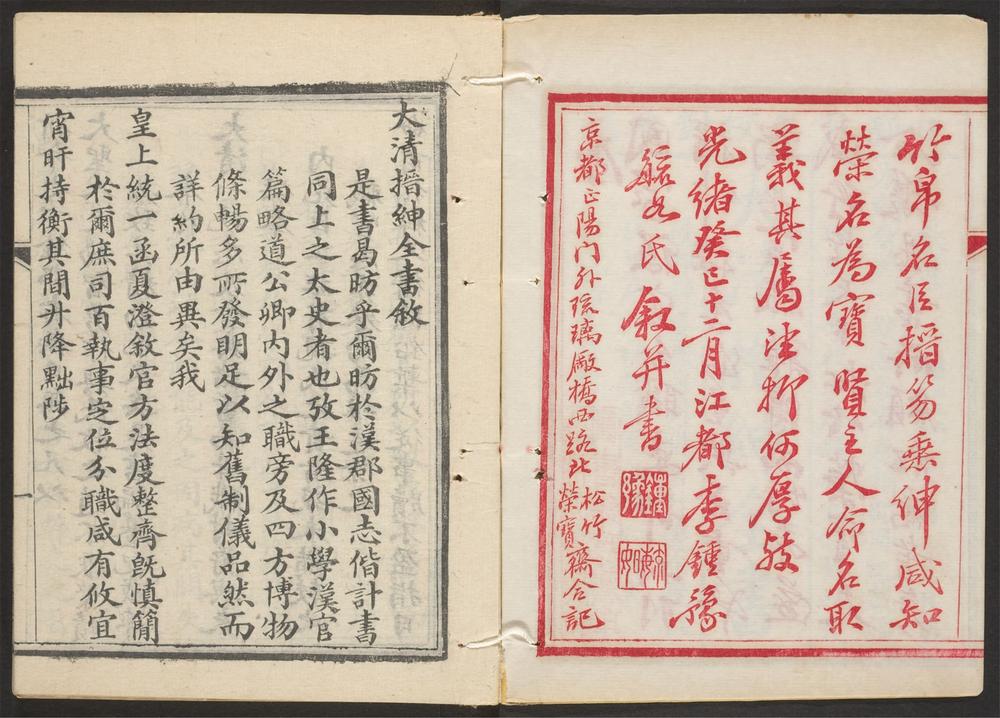 竹帛名臣搢笏垂紳咸知
榮名為寶賢主人命名取
義其屬望抑何厚歟
光緒癸巳十二月江都李鍾豫
毓如氏叙并書
鍾豫
毓如
京都正陽門外琉璃廠橋西路北松竹榮寶齋合記
大清搢紳全書敘
是書曷昉乎爾昉於漢郡國志偕計書
同上之太史者也攷王隆作小學漢官
篇略道公卿內外之職旁及四方博物
條暢多所發明足以知舊制儀品然而
詳約所由異矣我
皇上統一函夏澄敘官方法度整齊既慎簡
於爾庶司百執事定位分職咸有攸宜
宵旰持衡其間升降黜陟